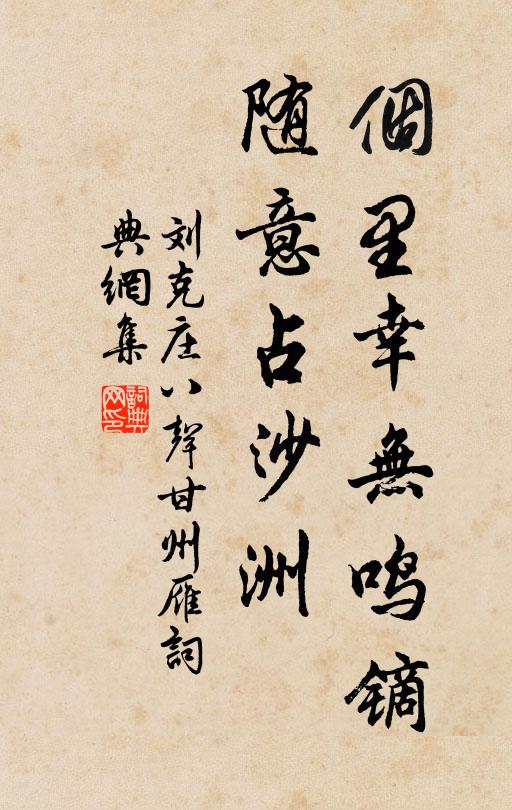 個里幸無鳴鏑
随意占沙洲
刘克庄八聲甘州雁詞
典網集
詞典網印